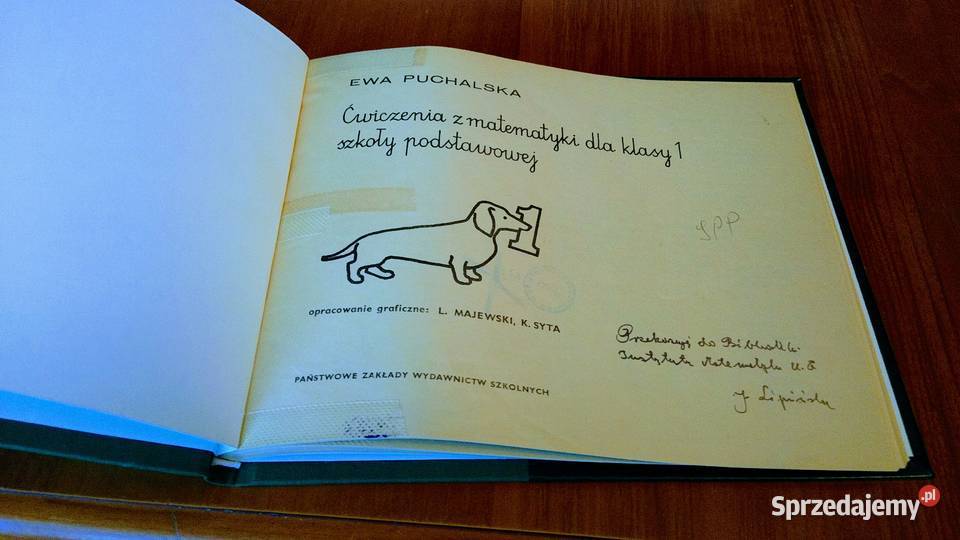 EWA PUCHALSKA
Ćwiczenia z matematyki dla klasy 1
szkoły podstawowej
1
opracowanie graficzne: L. MAJEWSKI, K. SYTA
PAŃSTWOWE ZAKŁADY WYDAWNICTW SZKOLNYCH
SPP
Przekazuję do Biblioteki
Instytutu Matematyki U.G
J Lipiński
Sprzedajemy.pl